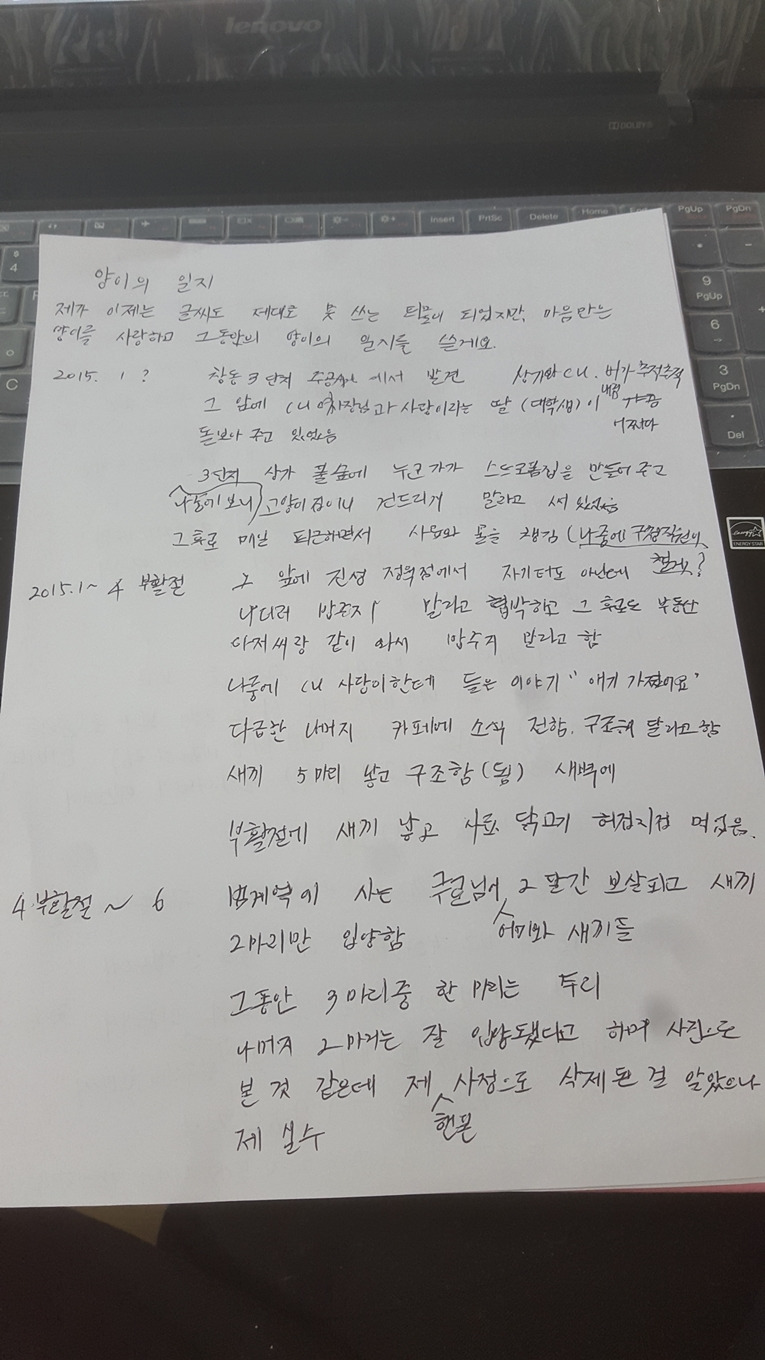 lenovo
DOLBY
Insert PrtSc Delete Home PgUp PgDn
양이의 일지
제가 이제는 글씨도 제대로 못 쓰는 되었지만, 마음만은
양이를 사랑하고 그동안의 양이의 일지를 쓸게요.
2015. 1 ? 창동 3단지 주공 에서 발견 상가와 CU. 비가 추적추적 내림
그 앞에 CU 여사장님과 사랑이라는 딸 (대학생)이 가끔 어쩌다
돌보아 주고 있었음
3단지 상가 풀숲에 누군가가 스트로폼집을 만들어 주고
(나중에 보니) 고양이집이니 건드리게 말라고 써 있었음
그 후로 매일 퇴근하면서 사료와 물을 챙김 (나중에
2015.1 ~ 4 부활절 그 앞에 진성 정육점에서 자기터도 아닌데
나더러 밥주지 말라고 협박하고 그 후로도 부동산
아저씨랑 같이 와서 밥주지 말라고 함
나중에 CU 사랑이한테 들은 이야기 " 애기 가졌어요"
다급한 나머지 카페에 소식 전함. 구조해 달라고 함
새끼 5마리 낳고 구조함(됨) 새벽에
부활절에 새끼 낳고 사료, 닭고기 허겁지겁 먹었음.
4.부활절 ~ 6 범계역에 사는 어미와 새끼들 2달간 보살피고 새끼
2마리만 입양함
그동안 3마리중 한 마리는 투리
나머지 2마리는 잘 입양됐다고 하며 사진으로
본 것 같은데 제 핸폰 사정으로 삭제된 걸 알았으나
제 실수
PgUp PgDn
9 PgUp
6
3 PgDn
Del
ENERGY STAR